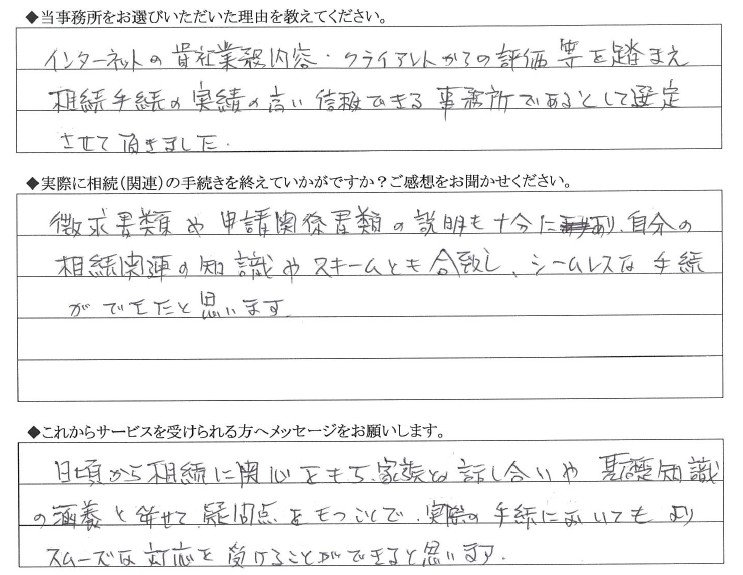 ◆当事務所をお選びいただいた理由を教えてください。
インターネットの貴社業務内容・クライアントからの評価等を踏まえ
相続手続の実績の高い信頼できる事務所であるとして選定
させて頂きました.
◆実際に相続(関連)の手続きを終えていかがですか?ご感想をお聞かせください。
徴求書類や申請関係書類の説明も十分にあり、自分の
相続関連の知識やスキームとも合致し、シームレスな手続
ができたと思います.
◆これからサービスを受けられる方へメッセージをお願いします。
日頃から相続に関心をもち、家族との話し合いや基礎知識
の涵養と併せて、疑問点をもつことで、実際の手続においても、より
スムーズな対応を受けることができると思います.